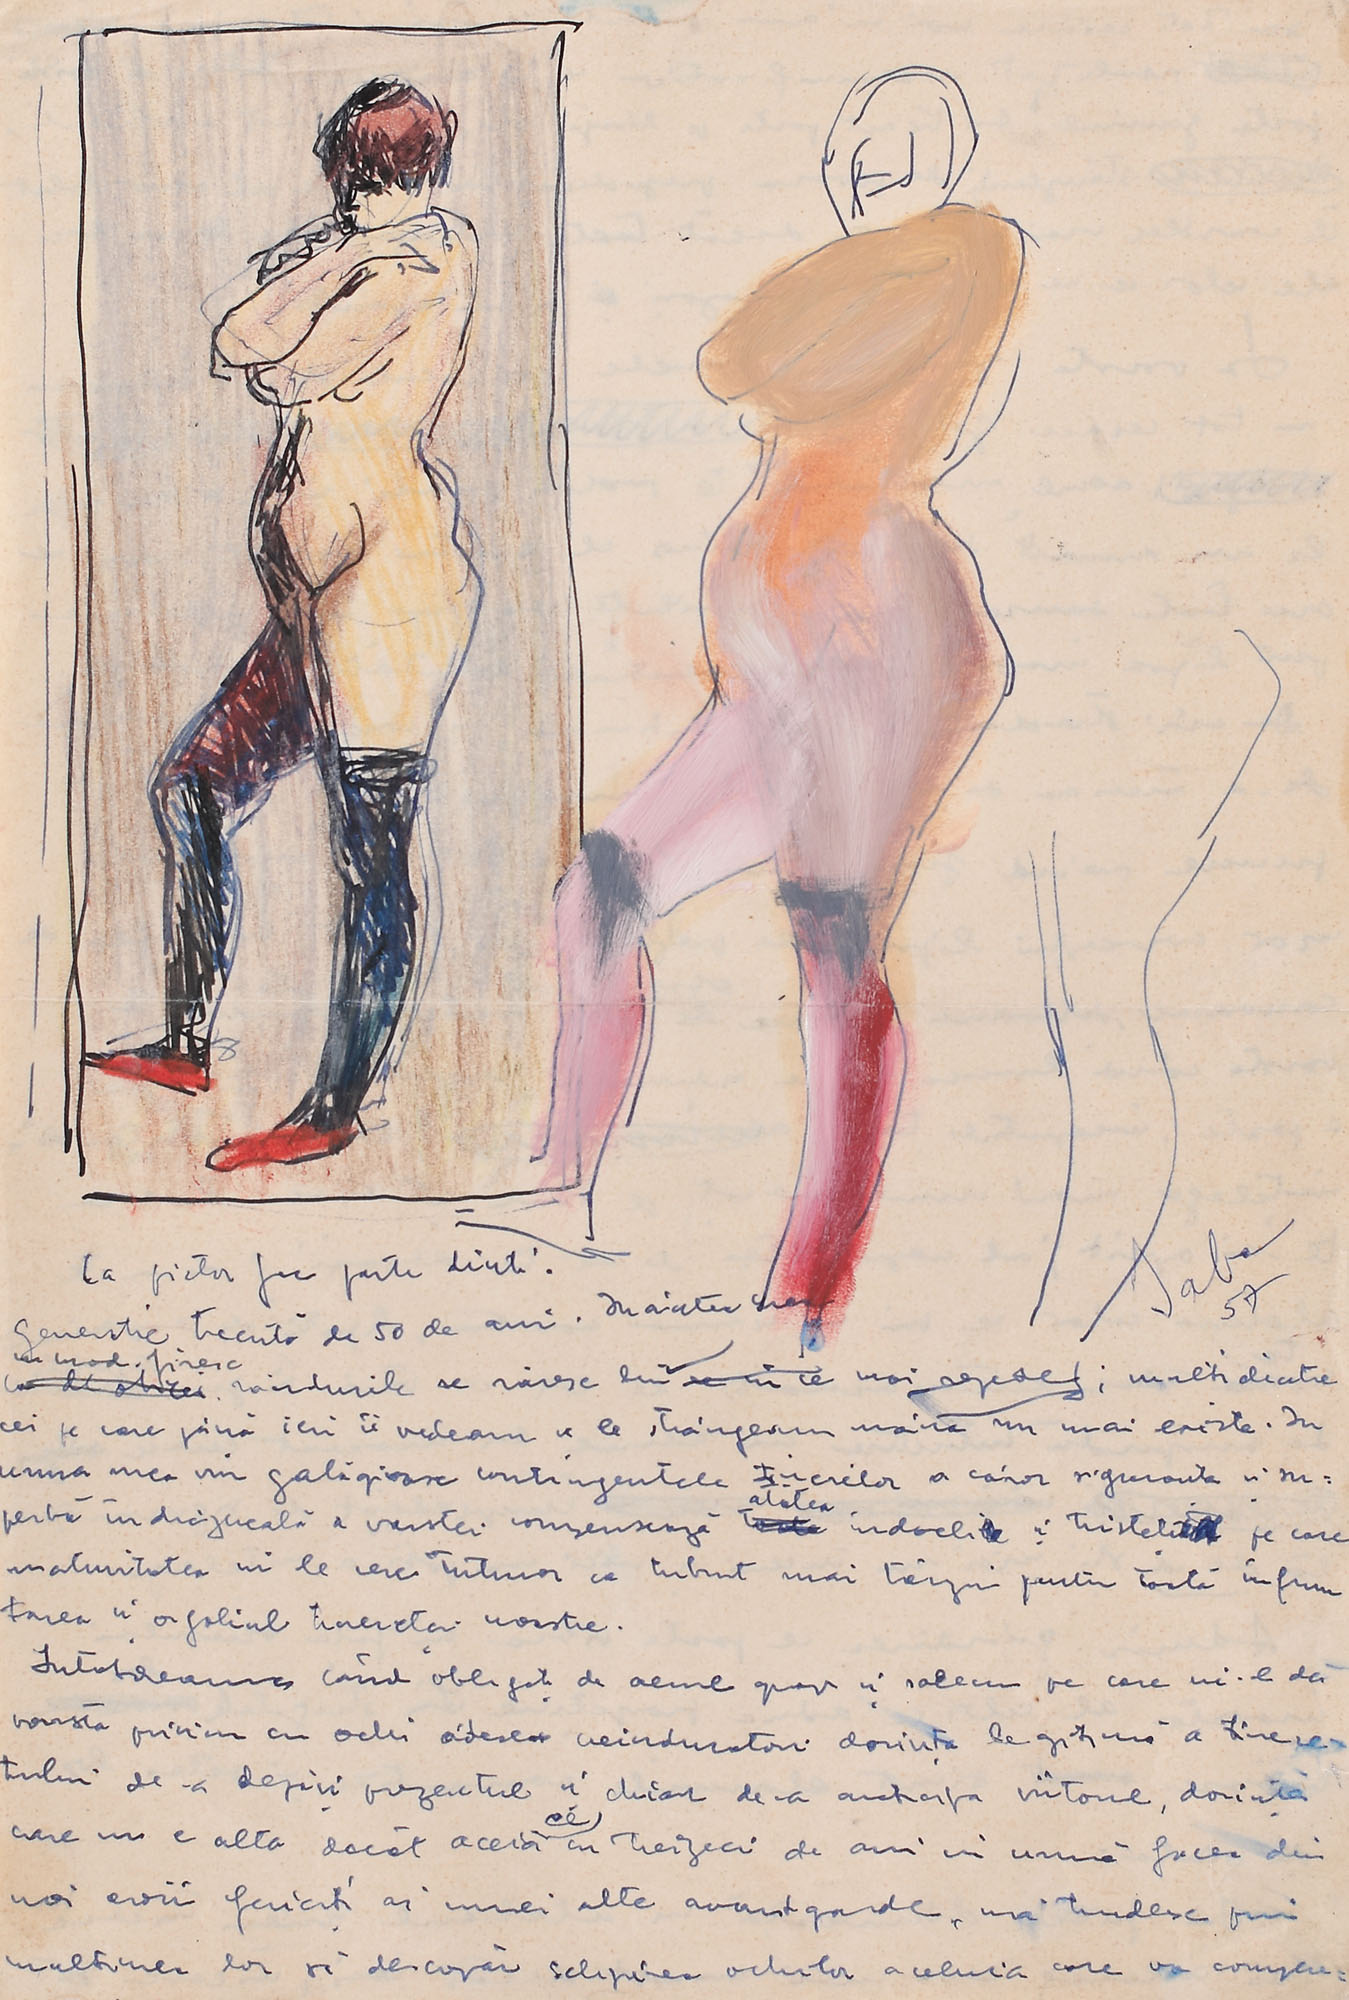 Ca pictor fac parte dintr'o
generație trecută de 50 de ani. Înaintea mea
în mod firesc
cu de obicei rândurile se răresc din ce în ce mai repede; mulți dintre
cei pe care până ieri îi vedeam și le strângeam mâna nu mai există. În
urma mea vin gălăgioase contingentele tinerilor a căror siguranță și su=
perbă îndrăzneală a vârstei compensează
atâtea
toate îndoieli și tristeți pe care
maturitatea ni le cere tuturor ca tribut mai târziu pentru toată înfrun
tarea și orgoliul tinereței noastre.
Întotdeauna când obligați de aerul grav și solemn pe care ni-l dă
vârsta privim cu ochi adesea neîndurători dorința legitimă a tinere=
tului de-a depăși prezentul și chiar de-a anticipa viitorul, dorință
care nu e alta decât aceia
ce
cu treizeci de ani în urmă făcea din
noi eroii fericiți ai unei alte avantgarde, mă gândesc prin
mulțimea lor să descopăr sclipirea ochilor aceluia care va compre=
Saba
57